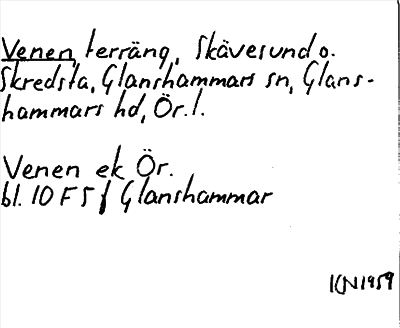 Venen, terräng, Skävesund o.
Skredsta, Glanshammars sn, Glans-
hammars hd, Ör. l.
Venen ek Ör.
bl. 10 F 5 f Glanshammar
KN 1959